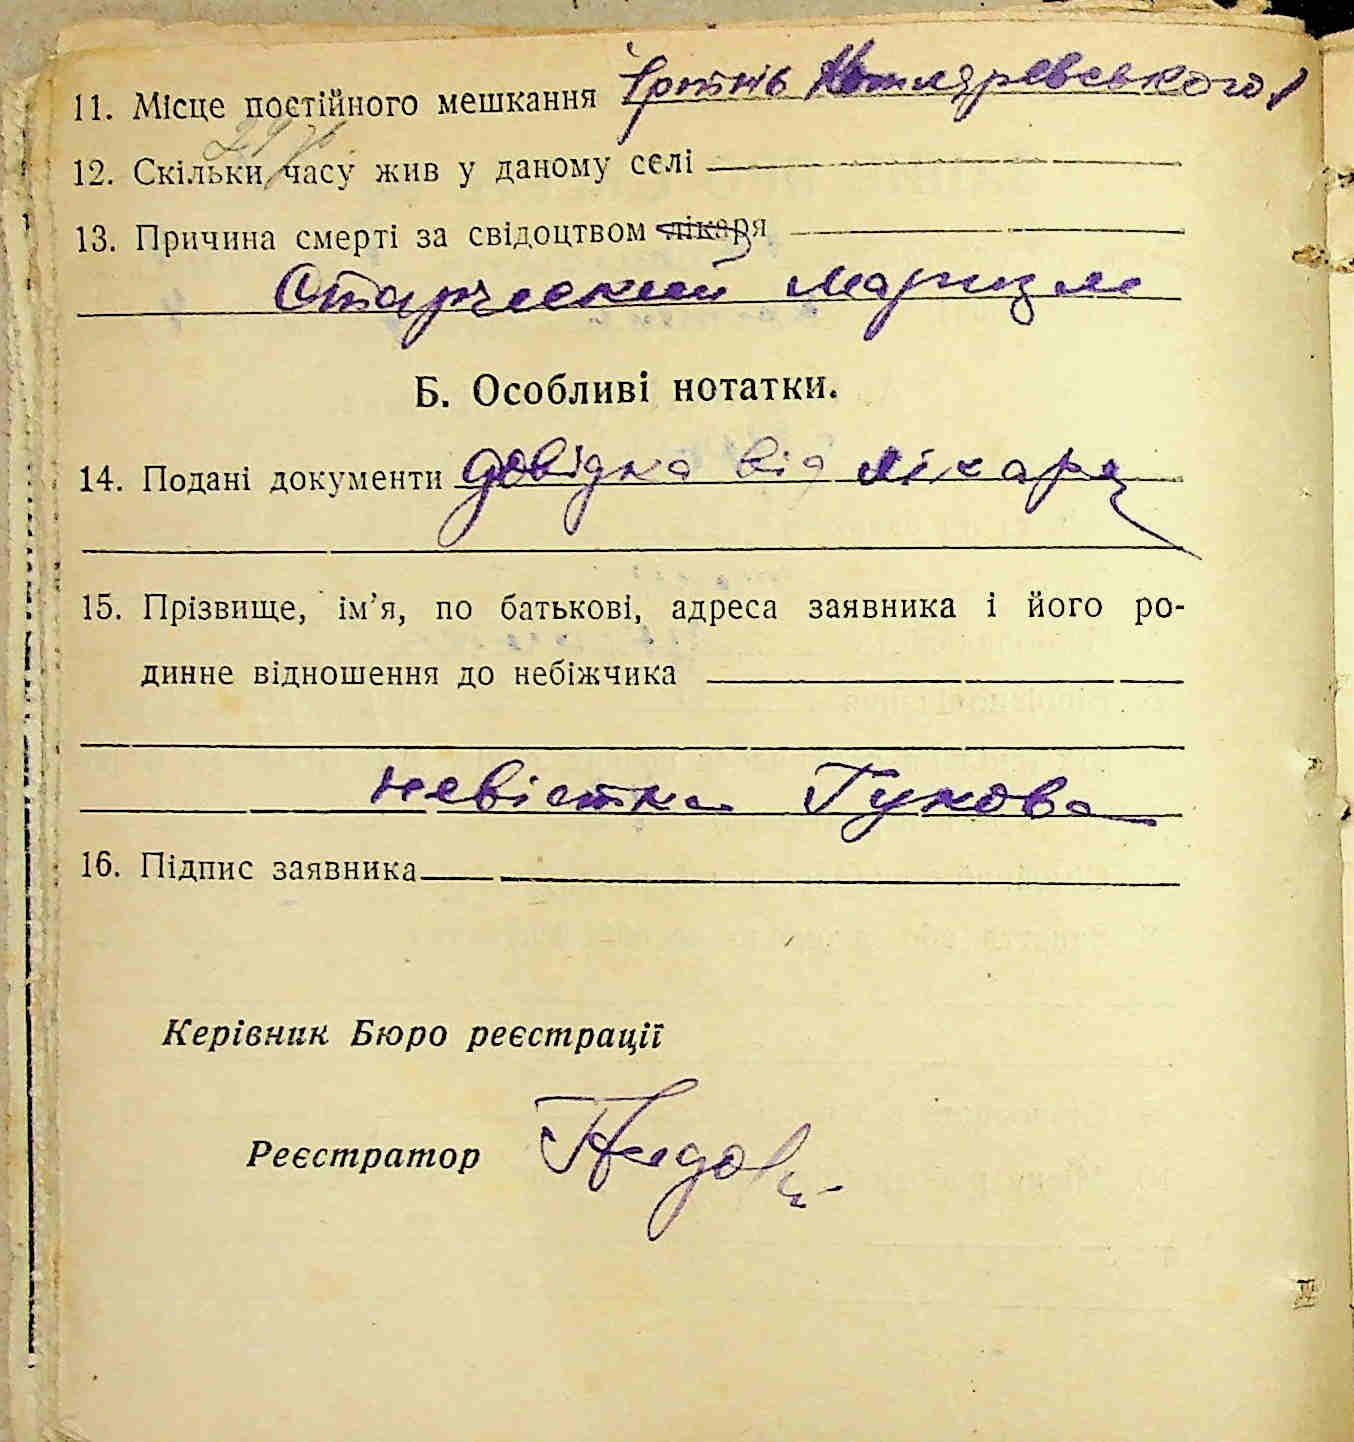 11. Місце постійного мешкання Ірпінь Котляревського 1
12. Скільки часу жив у даному селі
13. Причина смерті за свідоцтвом лікаря
Старческий маризм
Б. Особливі нотатки.
14. Подані документи довідка від лікаря
15. Прізвище, ім’я, по батькові, адреса заявника і його ро-
динне відношення до небіжчика
невістка Гукова
16. Підпис заявника
Керівник Бюро реєстрації
Реєстратор